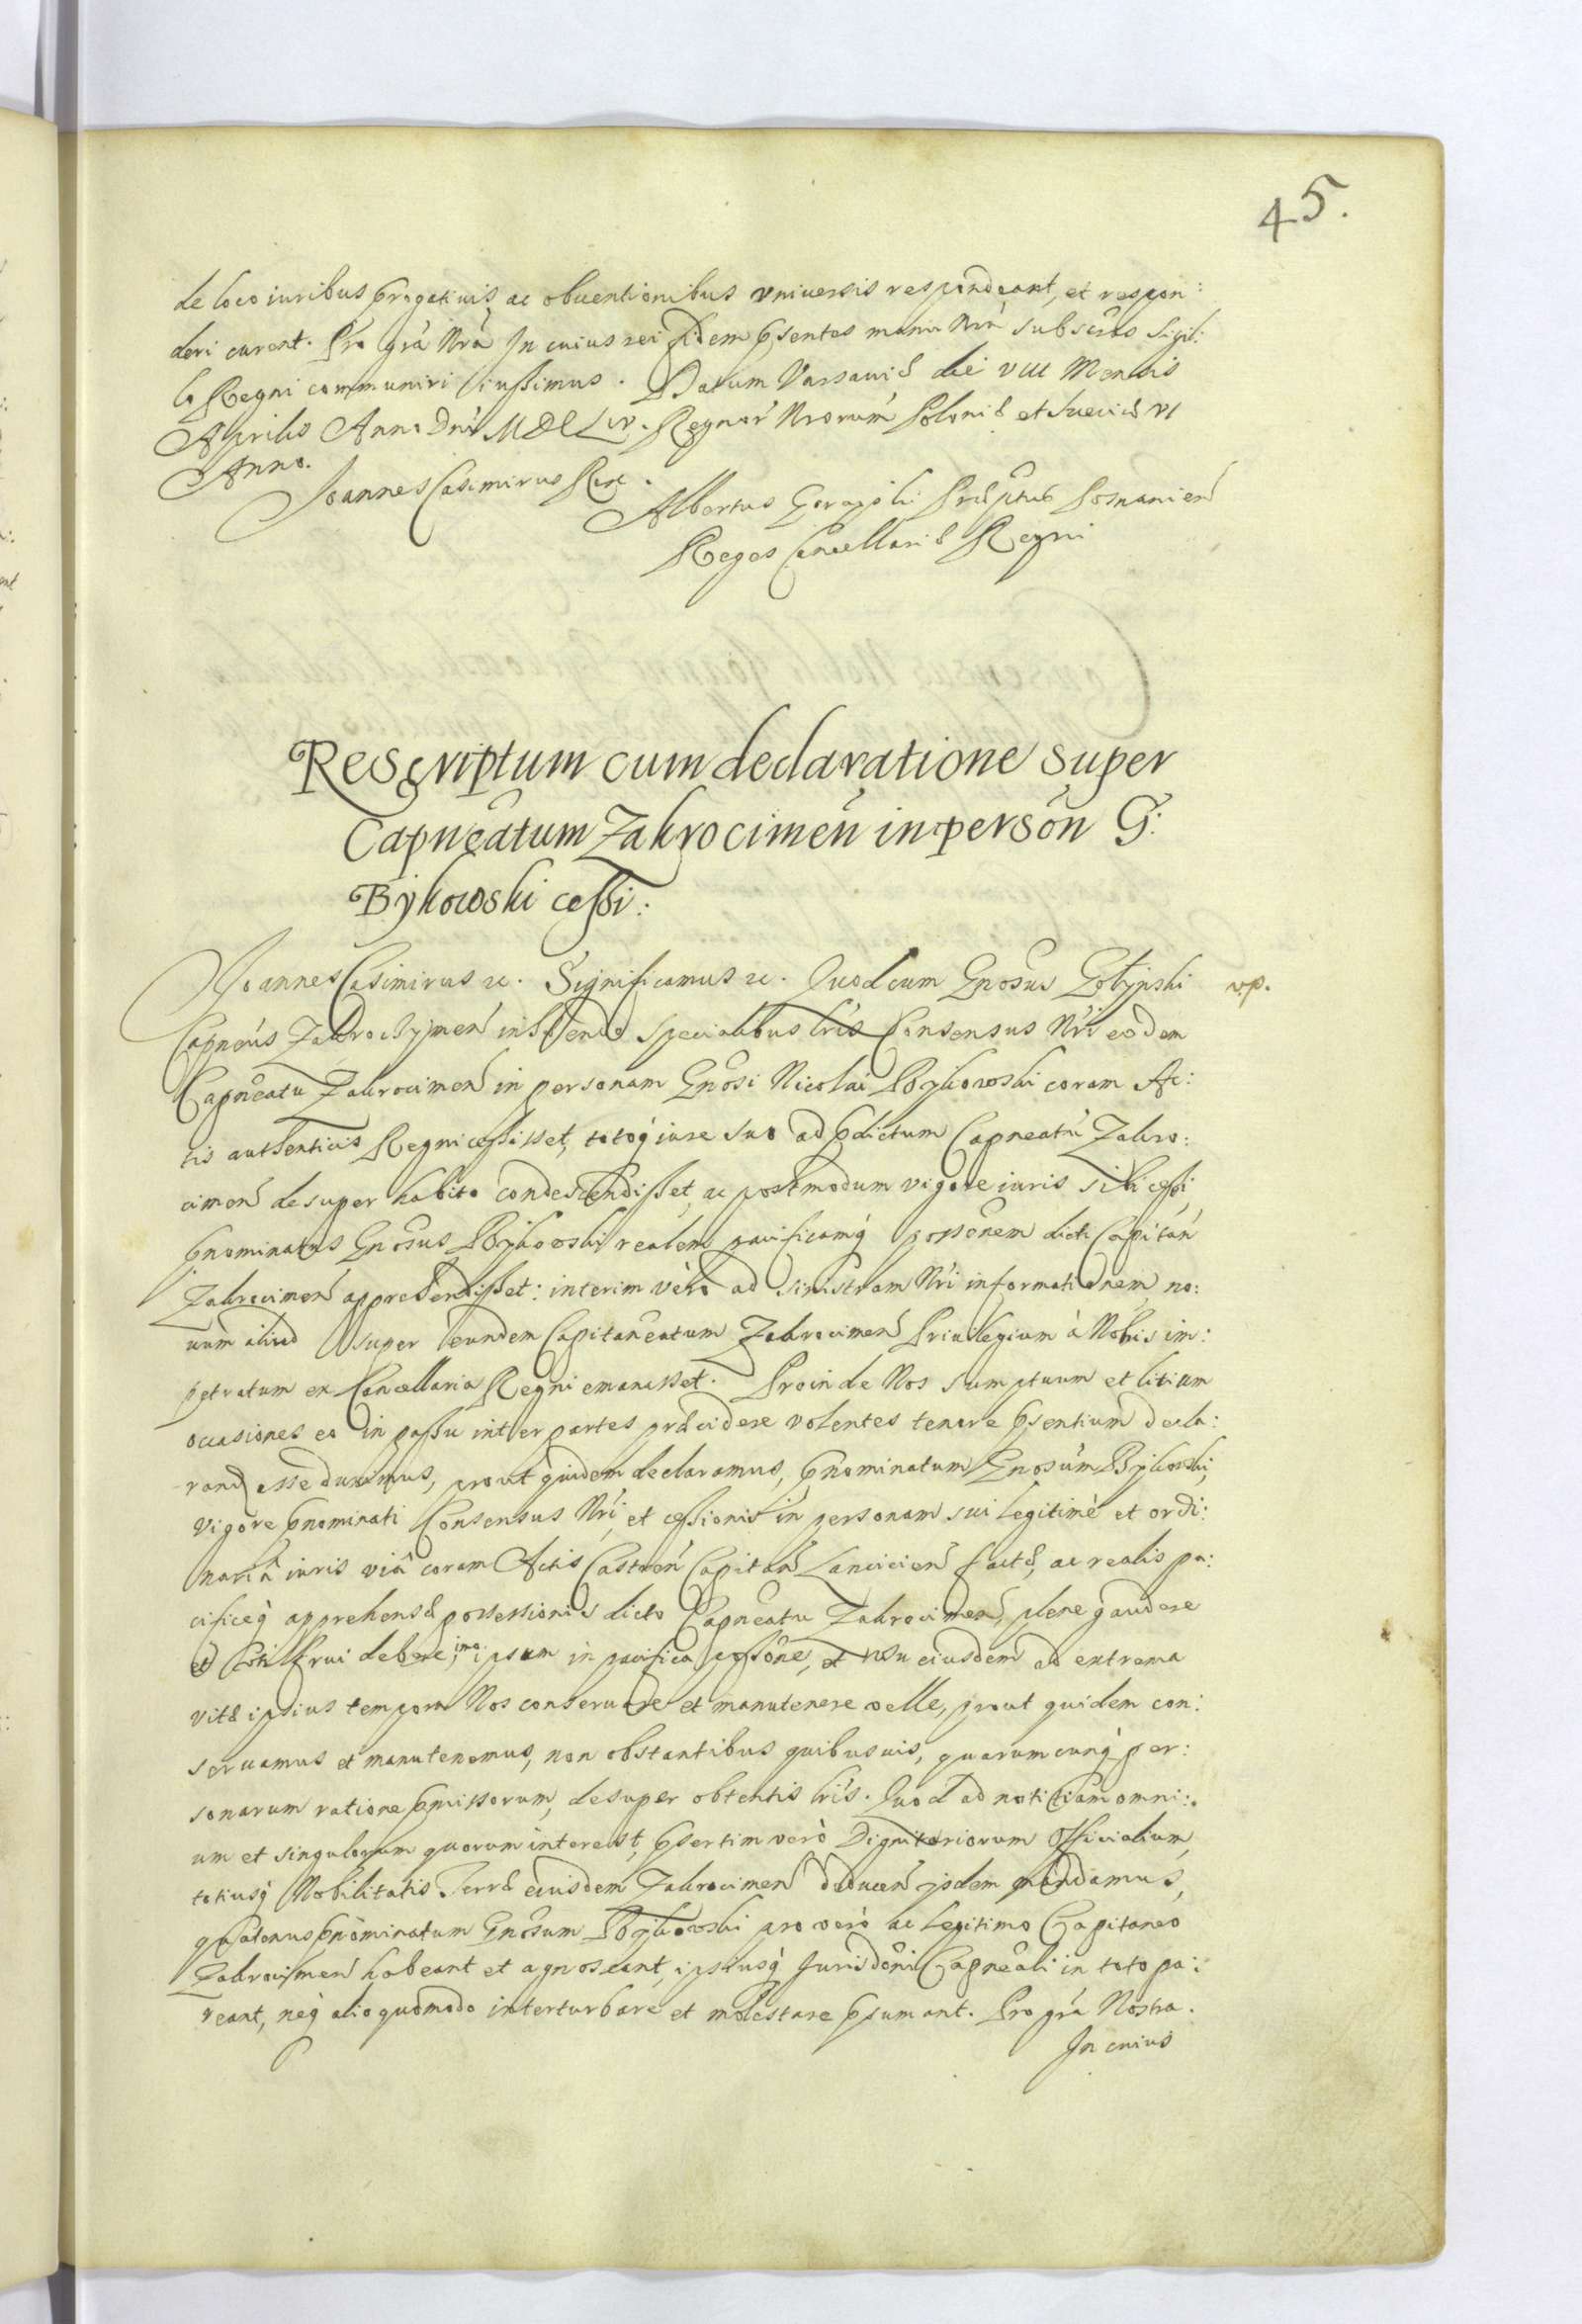 45.
de loco iuribus pręrogatiuis, ac obuentionibus vniuersis respondeant, et respon:
deri curent. Pro grã Nrã. In cuius rei fidem pñsentes manu Nrã subscrãs Sigil:
lo Regni communiri iussimus. Datum Varsauię die VIII Mensis
Aprilis Anno Dñi MDCLIV. Regnor Nrorum Polonię et Sueciæ VI
Anno.
Joannes Casimirus Rex.
Albertus Gorayski Præptus Posnanień
Regęs Cancellariæ Regni
Rescriptum cum declaratione super
Capnẽatum Zakrocimeń in persõn G:
Bykowski cessi:
Joannes Casimirus etc. Significamus etc. Quod cum Gnõsus Golyński
v.p.
Capneus Zakroczymeń insistendo specialibus lris Consensus Nri eodem
Capneatu Zakrocimeń in personam Gnõsi Nicolai Bykowski coram Ac:
tis authenticis Regni cessisset, totoq̃ iure suo ad p̃dictum Capneatũ Zakro:
cimeń desuper habito condescendisset, ac postmodum vigore iuris sibi cessi
p̃nominatus Gnõsus Bykowski realem pacificamq̃ possõnem dicti Capitań
Zakrocimeń apprehendisset: interim verò ad sinistram Nri informationem, no:
uum aliud super eundem Capitaneatum Zakrocimeń Priuilegium à Nobis im:
petratum ex Cancellaria Regni emanasset. Proinde Nos sumptuum et litium
occasiones eo in passu inter partes præcidere volentes tenore p̃sentium decla:
rand esse duximus, prout quidem declaramus, p̃nominatum Gnosum Bykowski,
vigore p̃nominati Consensus Nri, et cessionis in personam sui legitimè et ordi:
nariâ iuris viâ coram Actis Castreń Capitań Lancicień factæ, ac realis pa:
cificęq̃ apprehensæ possessionis dicto Capneatu Zakrocimeń, plene gaudere
et frui debere, imo ipsum in pacifica possõne, et vsu eiusdem ad extrema
vitæ ipsius tempora Nos conseruare et manutenere velle, prout quidem con:
seruamus et manutenemus, non obstantibus quibusuis, quarumcunq̃ per:
sonarum ratione p̃missorum, desuper obtentis lris. Quod ad notitiam omni:
um et singulorum quorum interest, p̃sertim verò Dignitariorum Officialium,
totiusq̃ Nobilitatis Terræ eiusdem Zakrocimeń deduceń ijsdem mandamus,
quatenus p̃nõminatum Gnõsum Bykowski pro vero ac legitimo Capitaneo
Zakrocimeń habeant et agnoscant, ipsiusq̃ Jurisdõni Capneali in toto pa:
reant, neq̃ alio quomodo interturbare et molestare p̃sumant. Pro grã Nostra.
In cuius